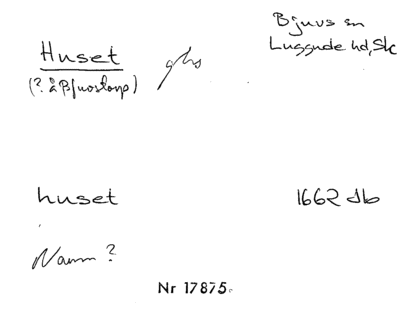 Bjuvs sn
Huset ghs Luggude hd, Sk
(? å Bjuvstorp)
huset 1662 Jb
Namn?
Nr 17875.